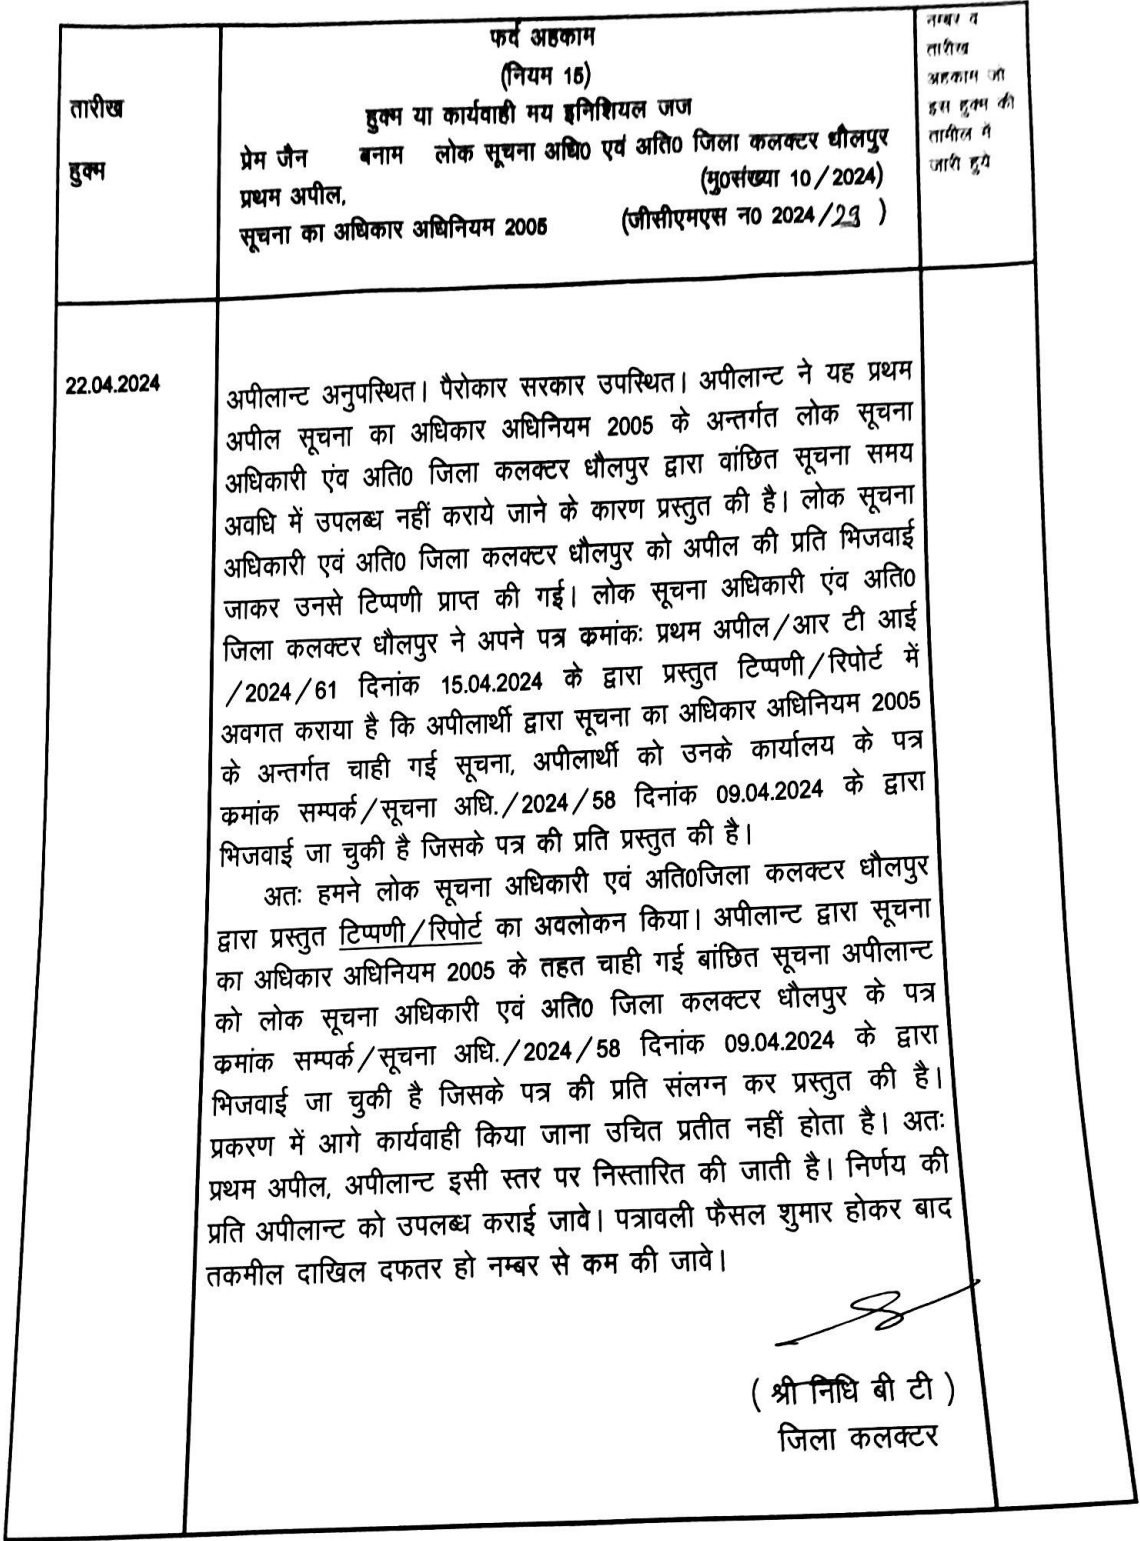 तारीख
हुक्म
फर्द अहकाम
(नियम 15)
हुक्म या कार्यवाही मय इनिशियल जज
प्रेम जैन बनाम लोक सूचना अधि0 एवं अति0 जिला कलक्टर धौलपुर
प्रथम अपील, (मु0संख्या 10/2024)
सूचना का अधिकार अधिनियम 2005 (जीसीएमएस न0 2024/29 )
नम्बर व
तारीख
अहकाम जो
इस हुक्म की
तामील में
जारी हुये
22.04.2024
अपीलान्ट अनुपस्थित। पैरोकार सरकार उपस्थित। अपीलान्ट ने यह प्रथम
अपील सूचना का अधिकार अधिनियम 2005 के अन्तर्गत लोक सूचना
अधिकारी एंव अति0 जिला कलक्टर धौलपुर द्वारा वांछित सूचना समय
अवधि में उपलब्ध नहीं कराये जाने के कारण प्रस्तुत की है। लोक सूचना
अधिकारी एवं अति0 जिला कलक्टर धौलपुर को अपील की प्रति भिजवाई
जाकर उनसे टिप्पणी प्राप्त की गई। लोक सूचना अधिकारी एंव अति0
जिला कलक्टर धौलपुर ने अपने पत्र क्रमांकः प्रथम अपील/आर टी आई
/2024/61 दिनांक 15.04.2024 के द्वारा प्रस्तुत टिप्पणी/रिपोर्ट में
अवगत कराया है कि अपीलार्थी द्वारा सूचना का अधिकार अधिनियम 2005
के अन्तर्गत चाही गई सूचना, अपीलार्थी को उनके कार्यालय के पत्र
क्रमांक सम्पर्क/सूचना अधि./2024/58 दिनांक 09.04.2024 के द्वारा
भिजवाई जा चुकी है जिसके पत्र की प्रति प्रस्तुत की है।
अतः हमने लोक सूचना अधिकारी एवं अति0जिला कलक्टर धौलपुर
द्वारा प्रस्तुत टिप्पणी/रिपोर्ट का अवलोकन किया। अपीलान्ट द्वारा सूचना
का अधिकार अधिनियम 2005 के तहत चाही गई बांछित सूचना अपीलान्ट
को लोक सूचना अधिकारी एवं अति0 जिला कलक्टर धौलपुर के पत्र
क्रमांक सम्पर्क/सूचना अधि./2024/58 दिनांक 09.04.2024 के द्वारा
भिजवाई जा चुकी है जिसके पत्र की प्रति संलग्न कर प्रस्तुत की है।
प्रकरण में आगे कार्यवाही किया जाना उचित प्रतीत नहीं होता है। अतः
प्रथम अपील, अपीलान्ट इसी स्तर पर निस्तारित की जाती है। निर्णय की
प्रति अपीलान्ट को उपलब्ध कराई जावे। पत्रावली फैसल शुमार होकर बाद
तकमील दाखिल दफतर हो नम्बर से कम की जावे।
( श्री निधि बी टी )
जिला कलक्टर